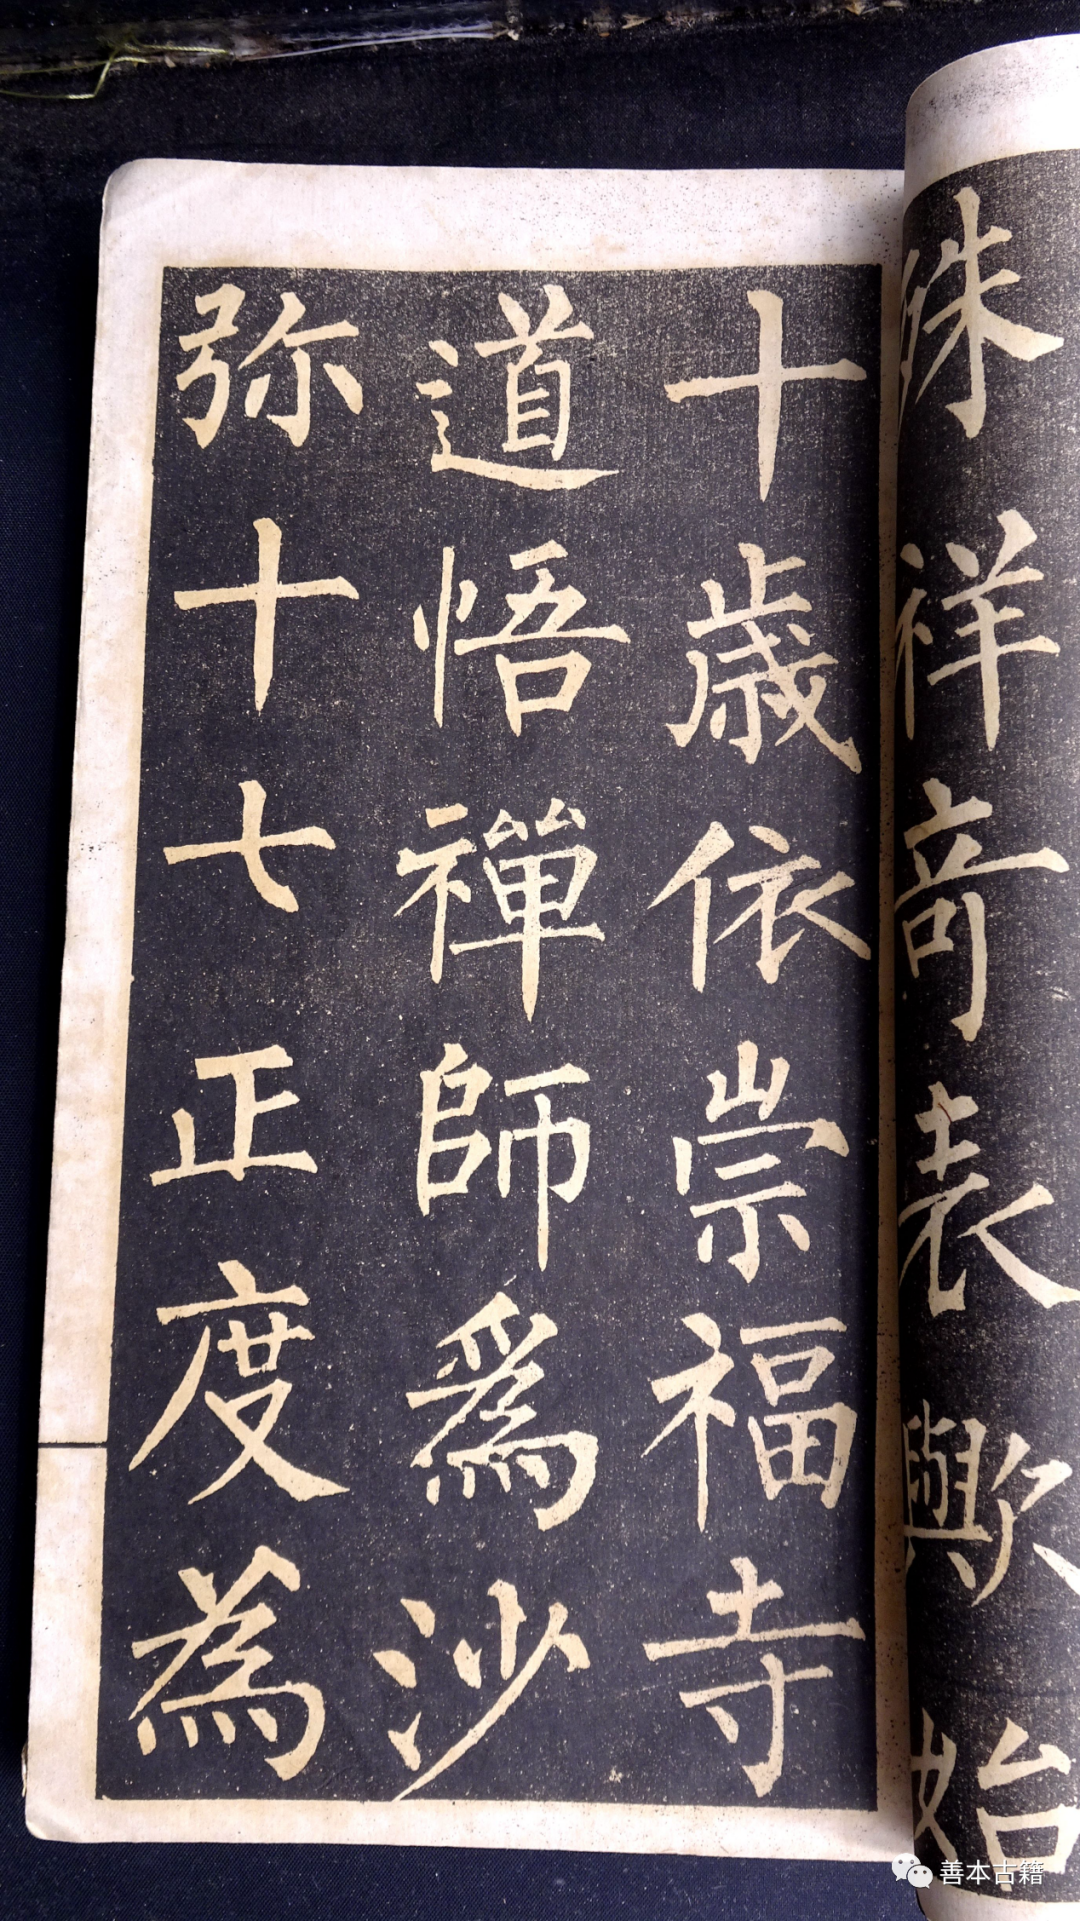 殊祥奇表歟始
十歳依崇福寺
道悟禪師爲沙
弥十七正度為
善本古籍